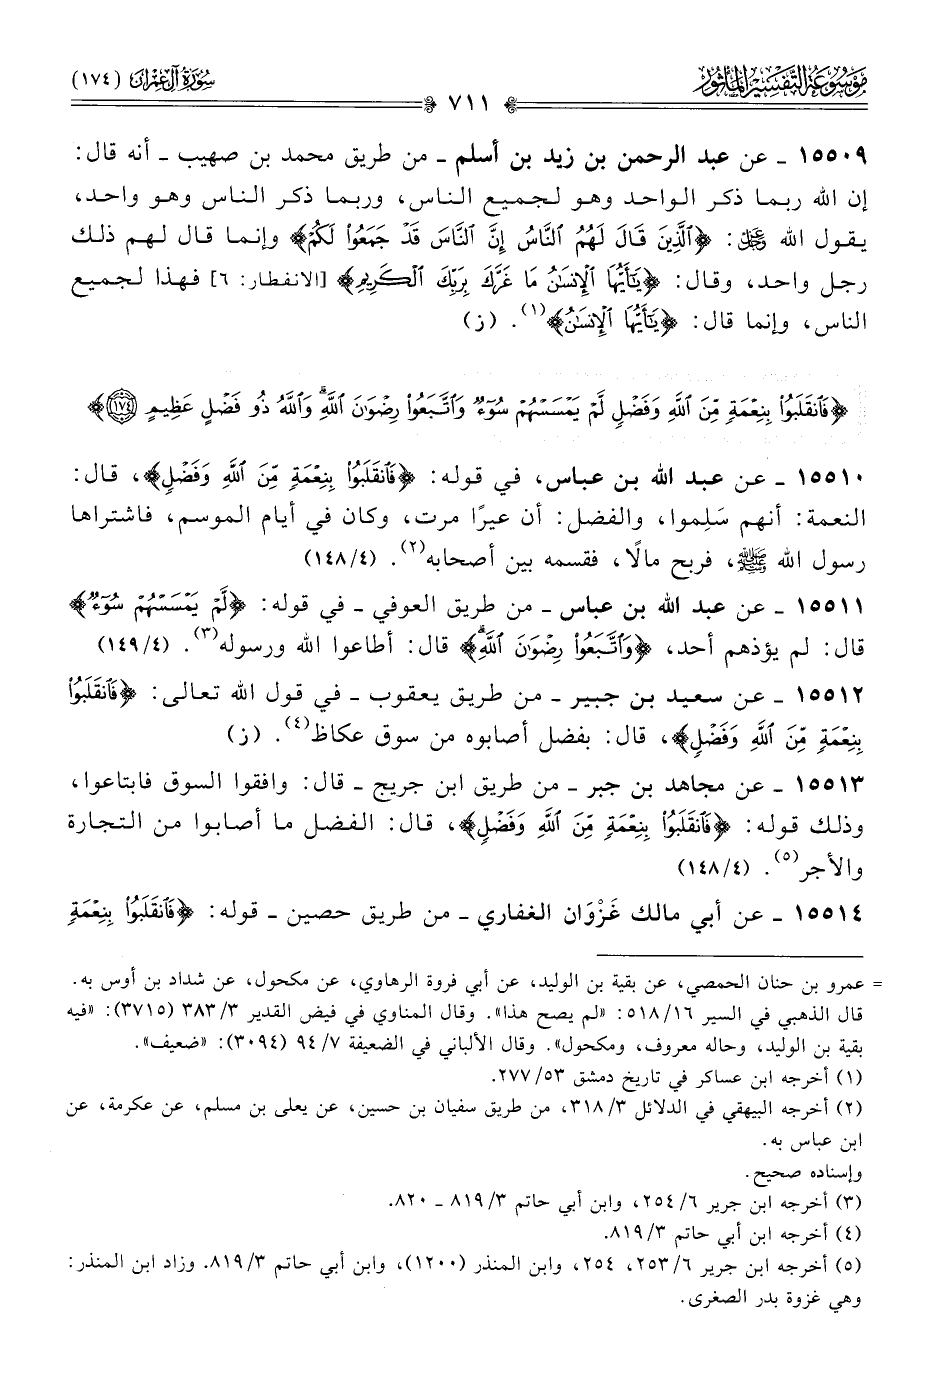 موسوعة التفسير المأثور
سورة آل عمران (١٧٤)
٧١١
١٥٥٠٩ ـ عن عبد الرحمن بن زيد بن أسلم ـ من طريق محمد بن صهيب ـ أنه قال:
إن الله ربما ذكر الواحد وهو لجميع الناس، وربما ذكر الناس وهو واحد،
يقول الله ﷿: ﴿ٱلَّذِينَ قَالَ لَهُمُ ٱلنَّاسُ إِنَّ ٱلنَّاسَ قَدْ جَمَعُوا۟ لَكُمْ﴾ وإنما قال لهم ذلك
رجل واحد، وقال: ﴿يَـٰٓأَيُّهَا ٱلْإِنسَـٰنُ مَا غَرَّكَ بِرَبِّكَ ٱلْكَرِيمِ﴾ [الانفطار: ٦] فهذا لجميع
الناس، وإنما قال: ﴿يَـٰٓأَيُّهَا ٱلْإِنسَـٰنُ﴾(١). (ز)
﴿فَٱنقَلَبُوا۟ بِنِعْمَةٍ مِّنَ ٱللَّهِ وَفَضْلٍ لَّمْ يَمْسَسْهُمْ سُوٓءٌ وَٱتَّبَعُوا۟ رِضْوَٰنَ ٱللَّهِ ۗ وَٱللَّهُ ذُو فَضْلٍ عَظِيمٍ ١٧٤﴾
١٥٥١٠ ـ عن عبد الله بن عباس، في قوله: ﴿فَٱنقَلَبُوا۟ بِنِعْمَةٍ مِّنَ ٱللَّهِ وَفَضْلٍ﴾، قال:
النعمة: أنهم سَلِموا، والفضل: أن عيرًا مرت، وكان في أيام الموسم، فاشتراها
رسول الله ﷺ، فربح مالًا، فقسمه بين أصحابه(٢). (١٤٨/٤)
١٥٥١١ ـ عن عبد الله بن عباس ـ من طريق العوفي ـ في قوله: ﴿لَّمْ يَمْسَسْهُمْ سُوٓءٌ﴾
قال: لم يؤذهم أحد، ﴿وَٱتَّبَعُوا۟ رِضْوَٰنَ ٱللَّهِ ۗ﴾ قال: أطاعوا الله ورسوله(٣). (١٤٩/٤)
١٥٥١٢ ـ عن سعيد بن جبير ـ من طريق يعقوب ـ في قول الله تعالى: ﴿فَٱنقَلَبُوا۟
بِنِعْمَةٍ مِّنَ ٱللَّهِ وَفَضْلٍ﴾، قال: بفضل أصابوه من سوق عكاظ(٤). (ز)
١٥٥١٣ ـ عن مجاهد بن جبر ـ من طريق ابن جريج ـ قال: وافقوا السوق فابتاعوا،
وذلك قوله: ﴿فَٱنقَلَبُوا۟ بِنِعْمَةٍ مِّنَ ٱللَّهِ وَفَضْلٍ﴾، قال: الفضل ما أصابوا من التجارة
والأجر(٥). (١٤٨/٤)
١٥٥١٤ ـ عن أبي مالك غَزْوَان الغفاري ـ من طريق حصين ـ قوله: ﴿فَٱنقَلَبُوا۟ بِنِعْمَةٍ
= عمرو بن حنان الحمصي، عن بقية بن الوليد، عن أبي فروة الرهاوي، عن مكحول، عن شداد بن أوس به.
قال الذهبي في السير ٥١٨/١٦: «لم يصح هذا». وقال المناوي في فيض القدير ٣٨٣/٣ (٣٧١٥): «فيه
بقية بن الوليد، وحاله معروف، ومكحول». وقال الألباني في الضعيفة ٩٤/٧ (٣٠٩٤): «ضعيف».
(١) أخرجه ابن عساكر في تاريخ دمشق ٢٧٧/٥٣.
(٢) أخرجه البيهقي في الدلائل ٣١٨/٣، من طريق سفيان بن حسين، عن يعلى بن مسلم، عن عكرمة، عن
ابن عباس به.
وإسناده صحيح.
(٣) أخرجه ابن جرير ٢٥٤/٦، وابن أبي حاتم ٨١٩/٣ ـ ٨٢٠.
(٤) أخرجه ابن أبي حاتم ٨١٩/٣.
(٥) أخرجه ابن جرير ٢٥٣/٦، ٢٥٤، وابن المنذر (١٢٠٠)، وابن أبي حاتم ٨١٩/٣. وزاد ابن المنذر:
وهي غزوة بدر الصغرى.